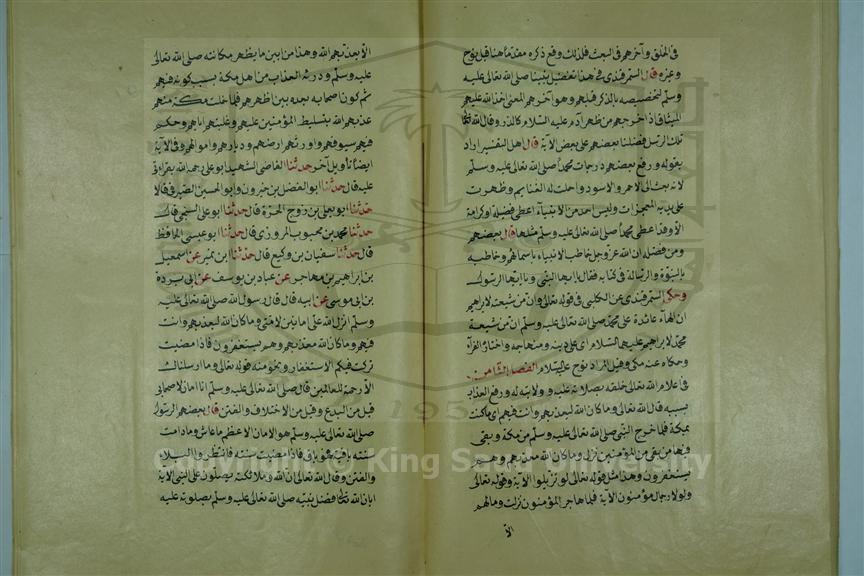 فى الخلق وآخرهم فى البعث فلذلك وقع ذكره مقدما هنا قبل نوح
وغيره قال السمرقندى فى هذا تفضيل نبينا صلى الله تعالى عليه
وسلم لتخصيصه بالذكر قبلهم وهو آخرهم المعنى اخذ الله عليهم
الميثاق اذ اخرجهم من ظهر آدم عليه السلام كالذر وقال الله تعالى
تلك الرسل فضلنا بعضهم على بعض الآية قال اهل التفسير اراد
بقوله ورفع بعضهم درجات محمدا صلى الله تعالى عليه وسلم
لانه بعث الى الاحمر والاسود واحلت له الغنايم وظهرت
على يديه المعجزات وليس احد من الانبياء اعطى فضيلة او كرامة
الا وقد اعطى محمد صلى الله تعالى عليه وسلم مثلها قال بعضهم
ومن فضله ان الله عز وجل خاطب الانبياء باسمائهم وخاطبه
بالنبوة والرسالة فى كتابه فقال يا ايها النبى ويا ايها الرسول
وحكى السمرقندى عن الكلبى فى قوله تعالى وان من شيعته لابراهيم
ان الهاء عائدة على محمد صلى الله تعالى عليه وسلم ان من شيعة
محمد لابراهيم عليهما السلام اى على دينه ومنهاجه واختاره الفراء
وحكاه عنه مكى وقيل المراد نوح عليه السلام الفصل الثامن
فى اعلام الله تعالى خلقه بصلاته عليه وولايته له ورفع العذاب
بسببه قال الله تعالى وما كان الله ليعذبهم وانت فيهم اى ما كنت
بمكة فلما خرج النبى صلى الله تعالى عليه وسلم من مكة وبقى
فيها من بقى من المؤمنين نزل وما كان الله معذبهم وهم
يستغفرون وهذا مثل قوله تعالى لو تزيلوا الآية وقوله تعالى
ولولا رجال مؤمنون الآية فلما هاجر المؤمنون نزلت وما لهم
الا
الا يعذبهم الله وهذا من ابين ما يظهر مكانته صلى الله تعالى
عليه وسلم ودرئه العذاب من اهل مكة بسبب كونه فيهم
ثم كون اصحابه بعده بين اظهرهم فلما خلت مكة منهم
عذبهم الله بتسليط المؤمنين عليهم وغلبتهم اياهم وحكم
فيهم سيوفهم واورثهم ارضهم وديارهم واموالهم وفى الآية
ايضا تأويل آخر حدثنا القاضى الشهيد ابو على رحمه الله بقراءتى
عليه قال حدثنا ابو الفضل بن خيرون وابو الحسين الصيرفى قالا
حدثنا ابو يعلى بن زوج الحرة قال حدثنا ابو على السنجى قال
حدثنا محمد بن محبوب المروزى قال حدثنا ابو عيسى الحافظ
قال حدثنا سفيان بن وكيع قال حدثنا ابن نمير عن اسمعيل
بن ابراهيم بن مهاجر عن عباد بن يوسف عن ابى بردة
بن ابى موسى عن ابيه قال قال رسول الله صلى الله تعالى عليه
وسلم انزل الله على امانين لامتى وما كان الله ليعذبهم وانت
فيهم وما كان الله معذبهم وهم يستغفرون فاذا مضيت
تركت فيكم الاستغفار ونحو منه قوله تعالى وما ارسلناك
الا رحمة للعالمين قال صلى الله تعالى عليه وسلم انا امان لاصحابى
قيل من البدع وقيل من الاختلاف والفتن قال بعضهم الرسول
صلى الله تعالى عليه وسلم هو الامان الاعظم ما عاش وما دامت
سنته باقية فهو باق فاذا مضيت سنته فانتظروا البلاء
والفتن وقال الله تعالى ان الله وملائكته يصلون على النبى الآية
ابان الله تعالى فضل نبيه صلى الله تعالى عليه وسلم بصلوته عليه
Copyright © King Saud University